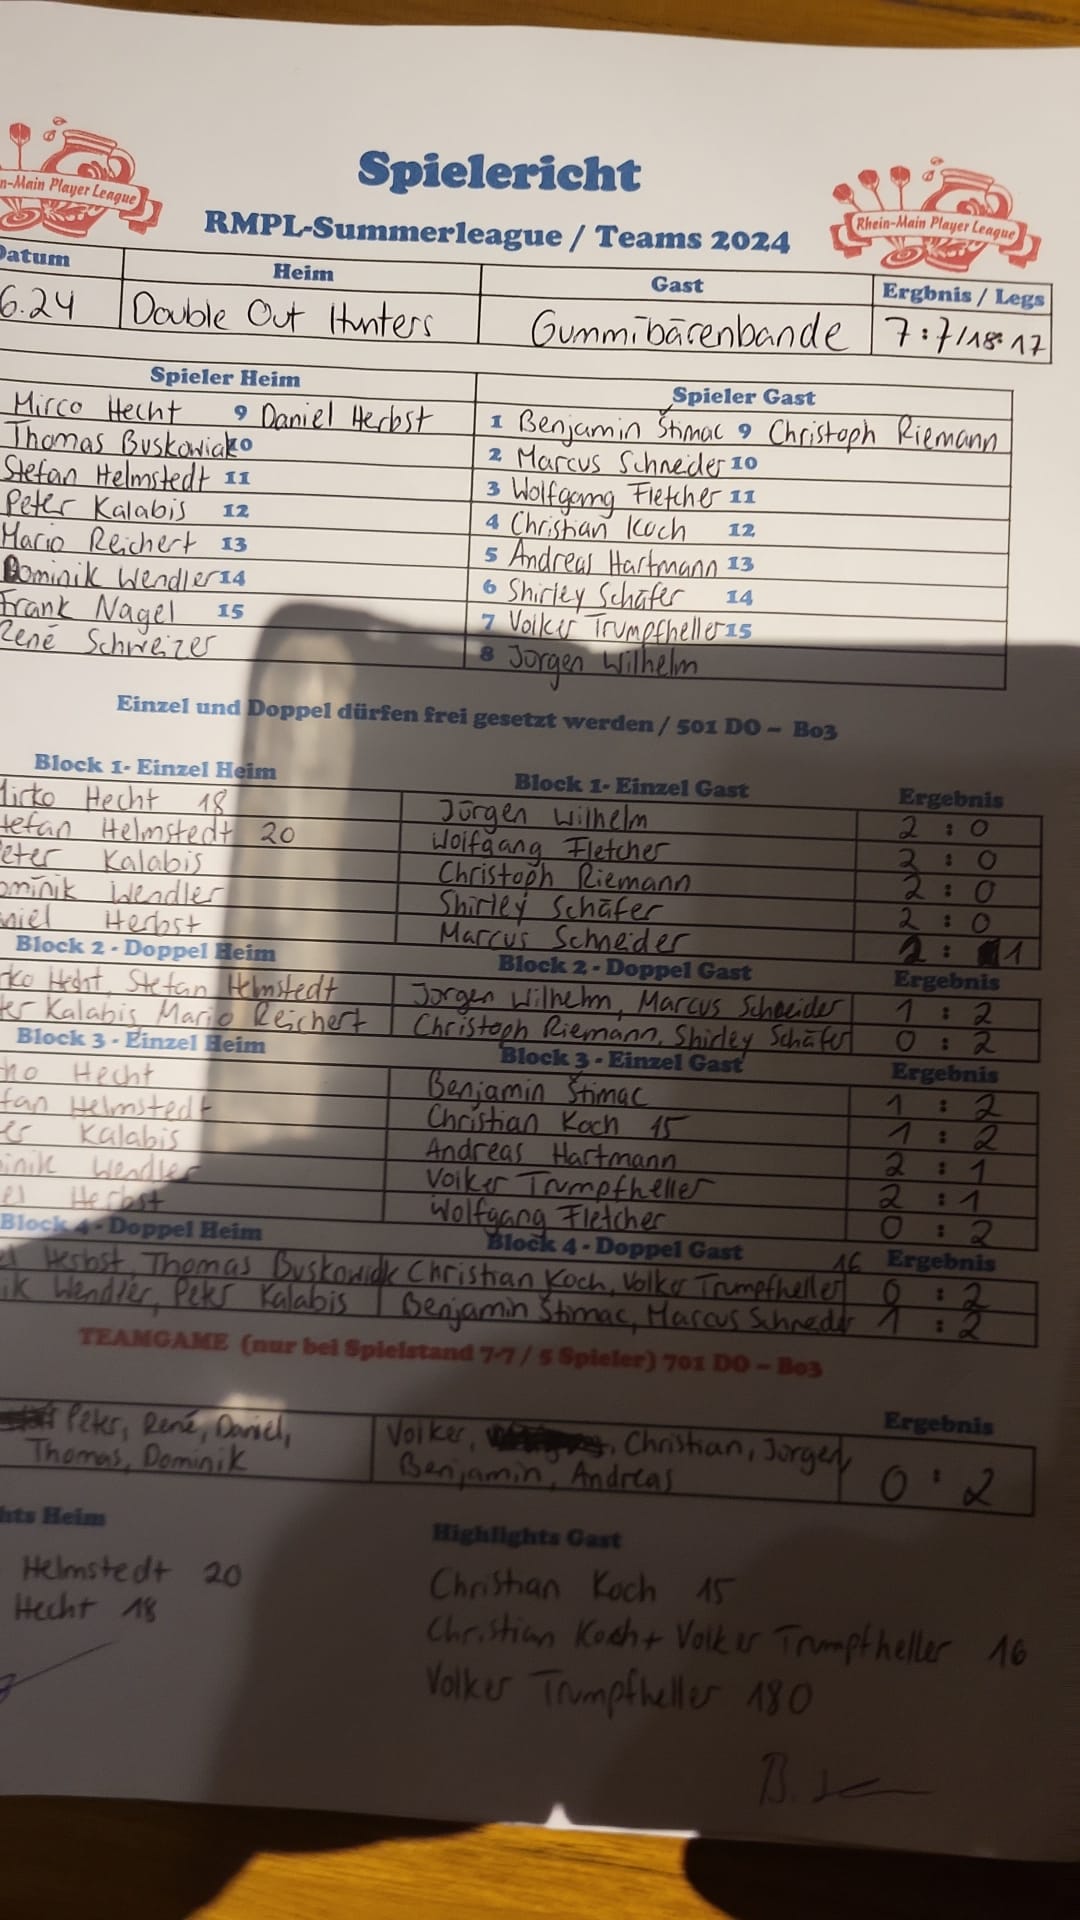 n-Main Player League
Spielericht
Rhein-Main Player League
RMPL-Summerleague / Teams 2024
Datum Heim Gast Ergbnis / Legs
6.24 Double Out Hunters Gummibärenbande 7:7/18:17
Spieler Heim Spieler Gast
Mirco Hecht 9 Daniel Herbst 1 Benjamin Štimac 9 Christoph Riemann
Thomas Buskowiak 10 2 Marcus Schneider 10
Stefan Helmstedt 11 3 Wolfgang Fletcher 11
Peter Kalabis 12 4 Christian Koch 12
Mario Reichert 13 5 Andreas Hartmann 13
Dominik Wendler 14 6 Shirley Schäfer 14
Frank Nagel 15 7 Volker Trumpfheller 15
René Schweizer 8 Jürgen Wilhelm
Einzel und Doppel dürfen frei gesetzt werden / 501 DO - Bo3
Block 1- Einzel Heim Block 1- Einzel Gast Ergebnis
Mirko Hecht 18 Jürgen Wilhelm 2 : 0
tefan Helmstedt 20 Wolfgang Fletcher 2 : 0
eter Kalabis Christoph Riemann 2 : 0
ominik Wendler Shirley Schäfer 2 : 0
niel Herbst Marcus Schneider 2 : 1
Block 2 - Doppel Heim Block 2 - Doppel Gast Ergebnis
rko Hecht, Stefan Helmstedt Jürgen Wilhelm, Marcus Schneider 1 : 2
ter Kalabis Mario Reichert Christoph Riemann, Shirley Schäfer 0 : 2
Block 3 - Einzel Heim Block 3 - Einzel Gast Ergebnis
Hecht Benjamin Štimac 1 : 2
fan Helmstedt Christian Koch 15 1 : 2
er Kalabis Andreas Hartmann 2 : 1
inik Wendler Volker Trumpfheller 2 : 1
el Herbst Wolfgang Fletcher 0 : 2
Block 4 - Doppel Heim Block 4 - Doppel Gast Ergebnis
el Herbst, Thomas Buskowiak Christian Koch, Volker Trumpfheller 16 0 : 2
ik Wendler, Peter Kalabis Benjamin Štimac, Marcus Schneider 1 : 2
TEAMGAME (nur bei Spielstand 7-7 / 5 Spieler) 701 DO - Bo3
Ergebnis
Peter, René, Daniel, Volker, Christian, Jürgen,
Thomas, Dominik Benjamin, Andreas 0 : 2
hts Heim Highlights Gast
Helmstedt 20 Christian Koch 15
Hecht 18 Christian Koch + Volker Trumpfheller 16
Volker Trumpfheller 180